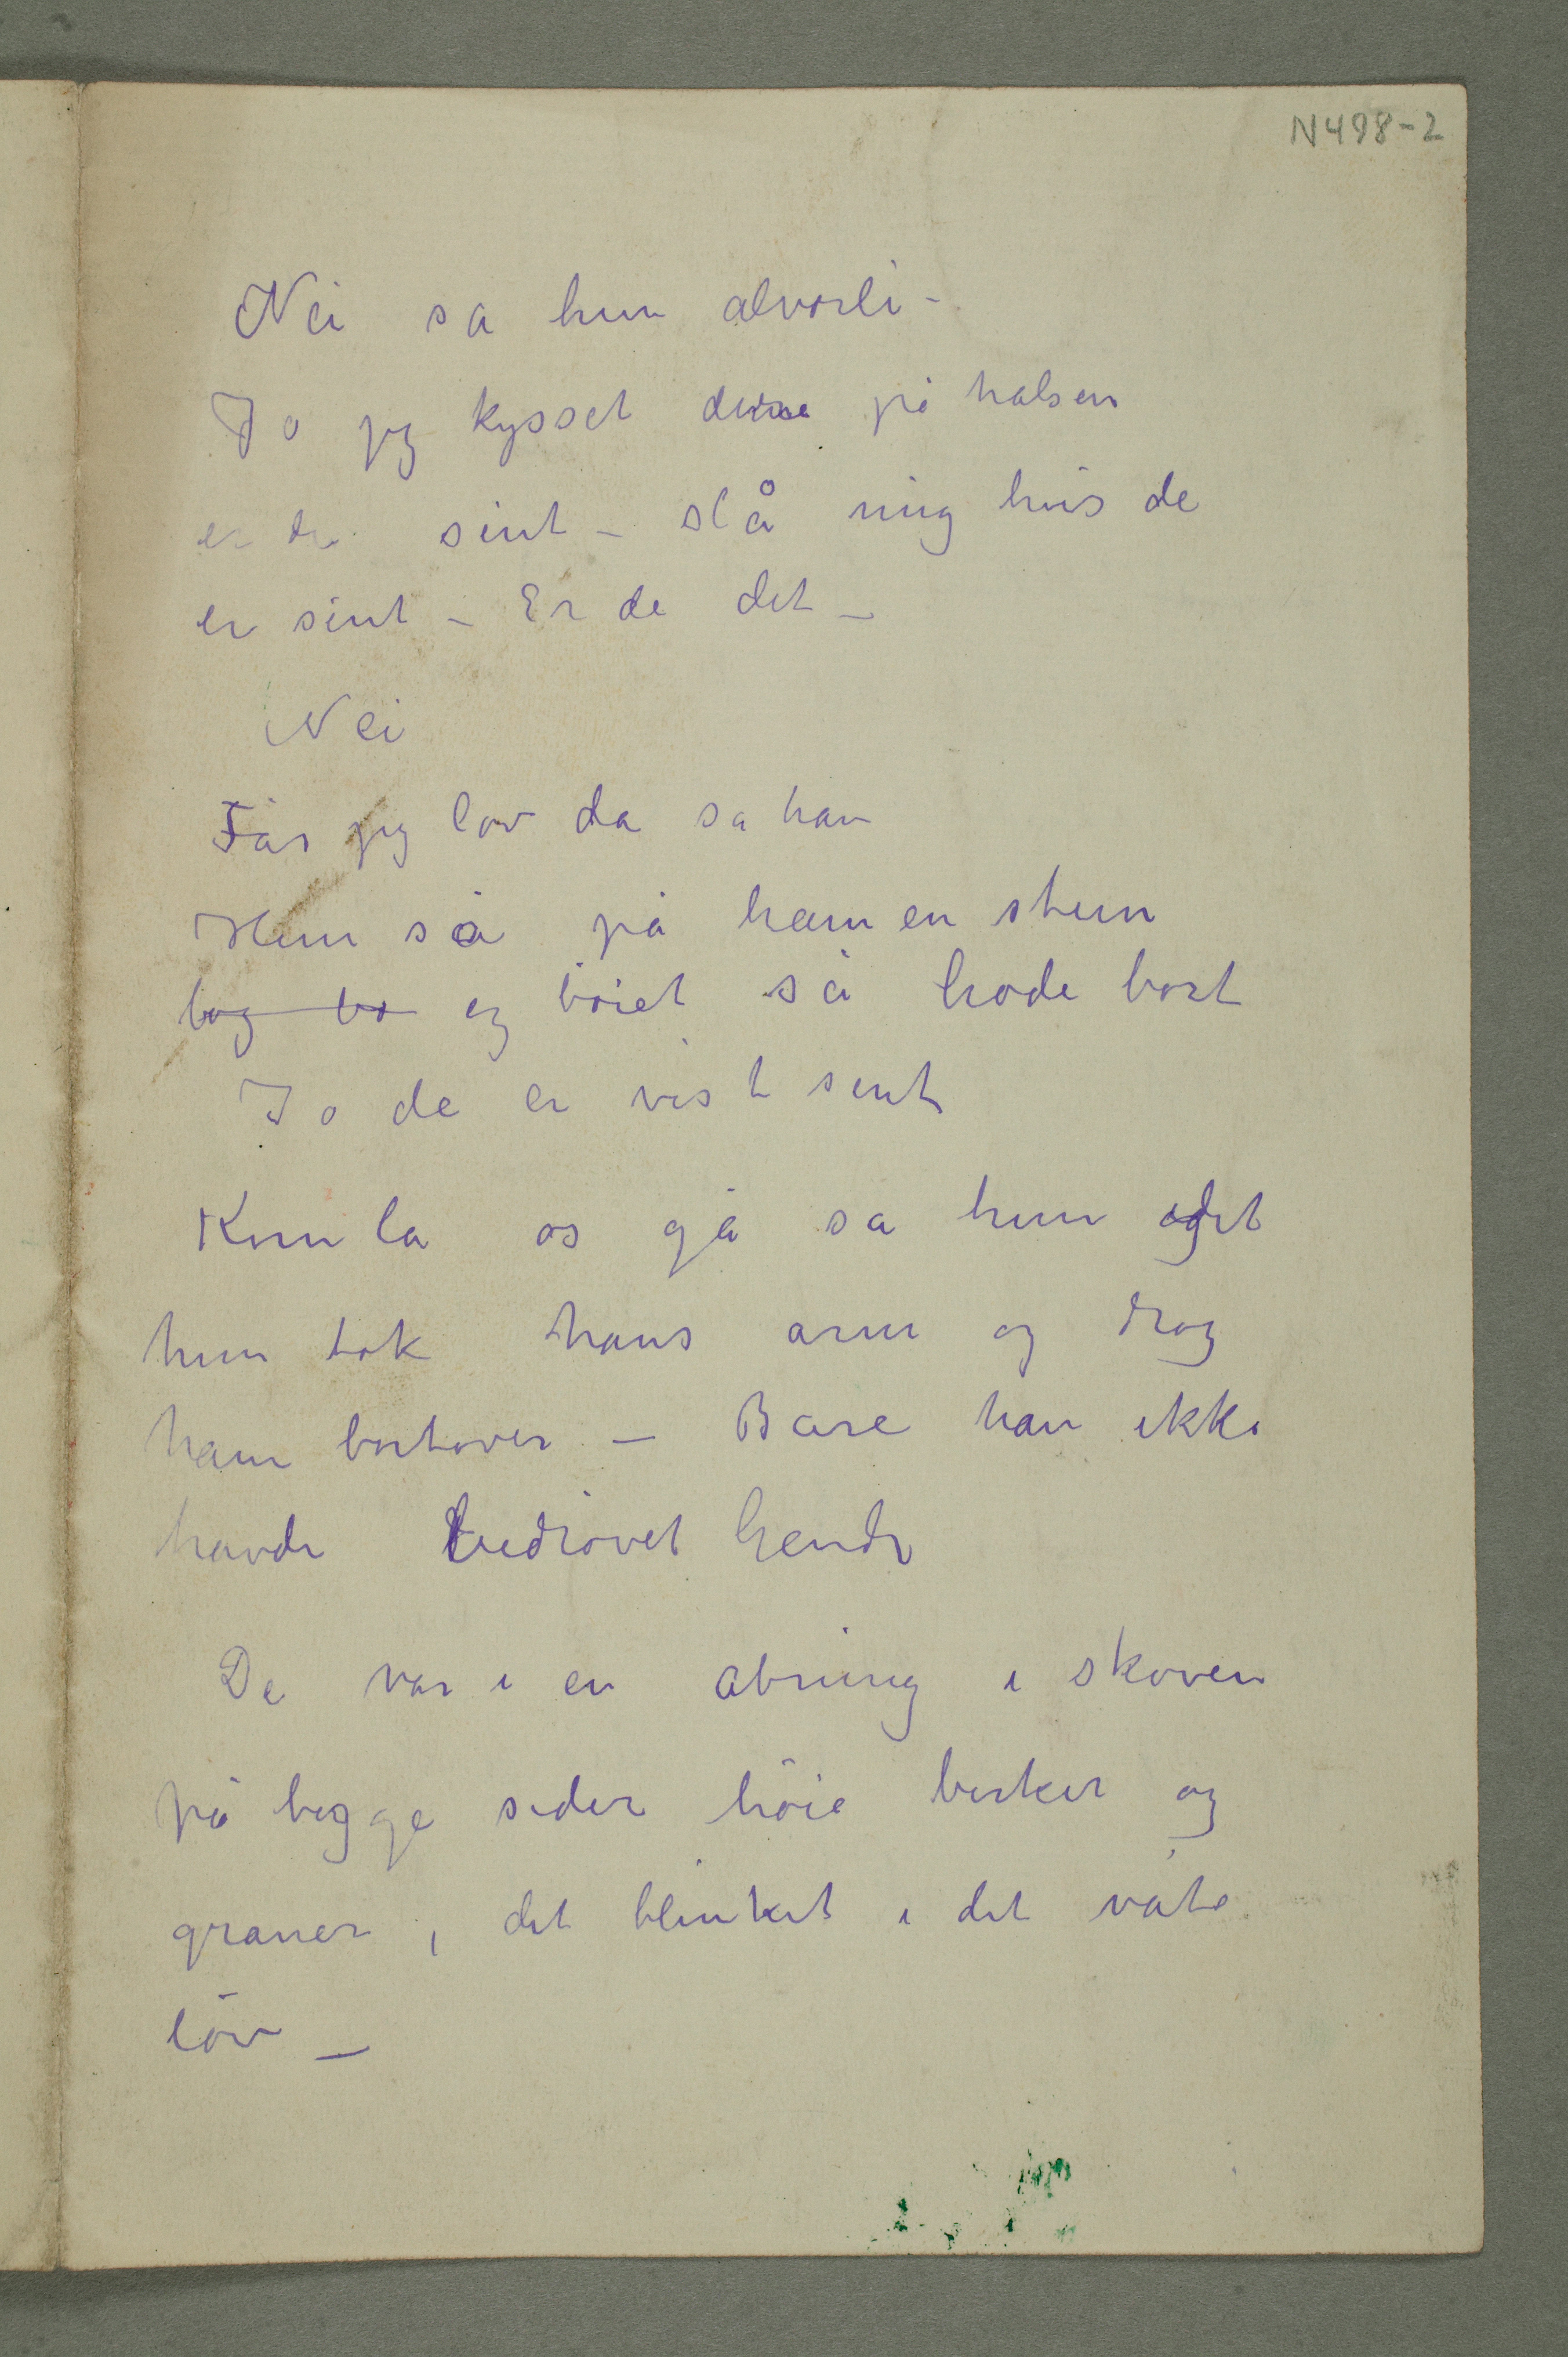 N498-2
Nei sa hun alvorli –
Jo jeg kysset dem på halsen
er de sint – slå mig hvis de
er sint – Er de det –
Nei
Får jeg lov da sa han
Hun så på ham en stun
bog bø og böiet så hode bort
Jo de er vist sint
Kom la os gå sa hun
hun tok hans arm og drog
ham bortover – Bare han ikke
havde bedrövet hende
De var i en åbning i skoven
på begge sider höie birker og
graner, det blinket i det våte
löv –